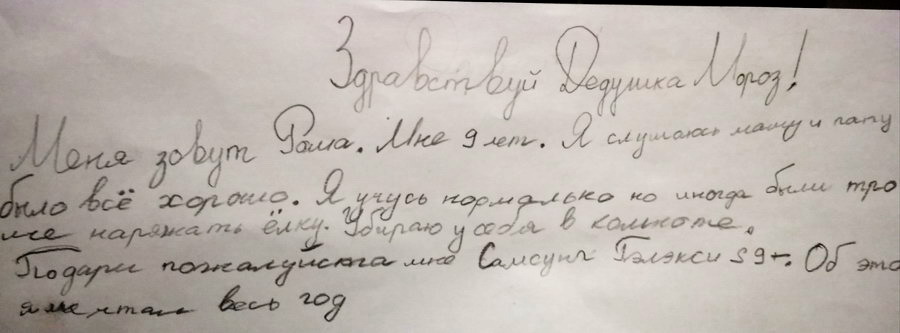 Здравствуй Дедушка Мороз!
Меня зовут Рома. Мне 9 лет. Я слушаюсь маму и папу
было всё хорошо. Я учусь нормально но иногда были тро
наряжать ёлку. Убираю у себя в комноте.
Подари пожалуйста мне Самсунг Гэлэкси S9+. Об это
я мечтал весь год